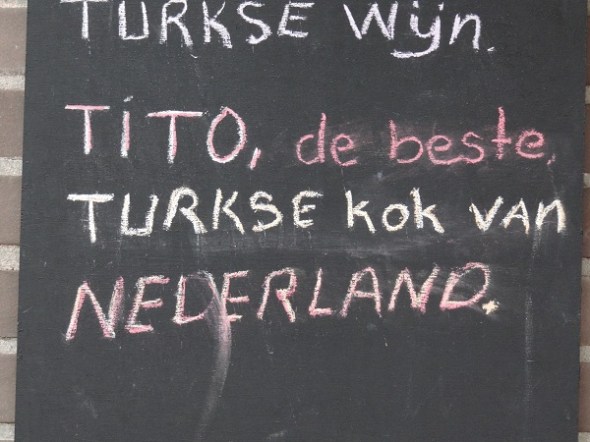 TURKSE Wijn.
TiTO, de beste,
TURKSE kok van
NEDERLAND.